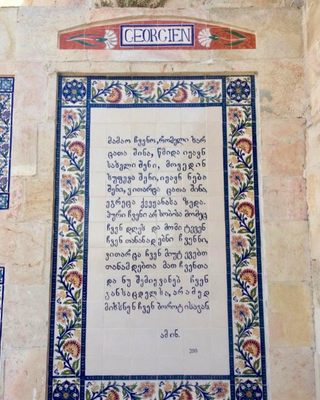 GEORGIEN
მამაო ჩვენო, რომელი ხარ
ცათა შინა, წმიდა იყავნ
სახელი შენი, მოვედინ
სუფევა შენი, იყავნ ნება
შენი, ვითარცა ცათა შინა,
ეგრეცა ქვეყანასა ზედა.
პური ჩვენი არსობისა მომეც
ჩვენ დღეს და მომიტევენ
ჩვენ თანანადებნი ჩვენნი,
ვითარცა ჩვენ მიუტევებთ
თანამდებთა მათ ჩვენთა
და ნუ შემიყვანებ ჩვენ
განსაცდელსა, არამედ
მიხსნენ ჩვენ ბოროტისაგან.
ამინ.